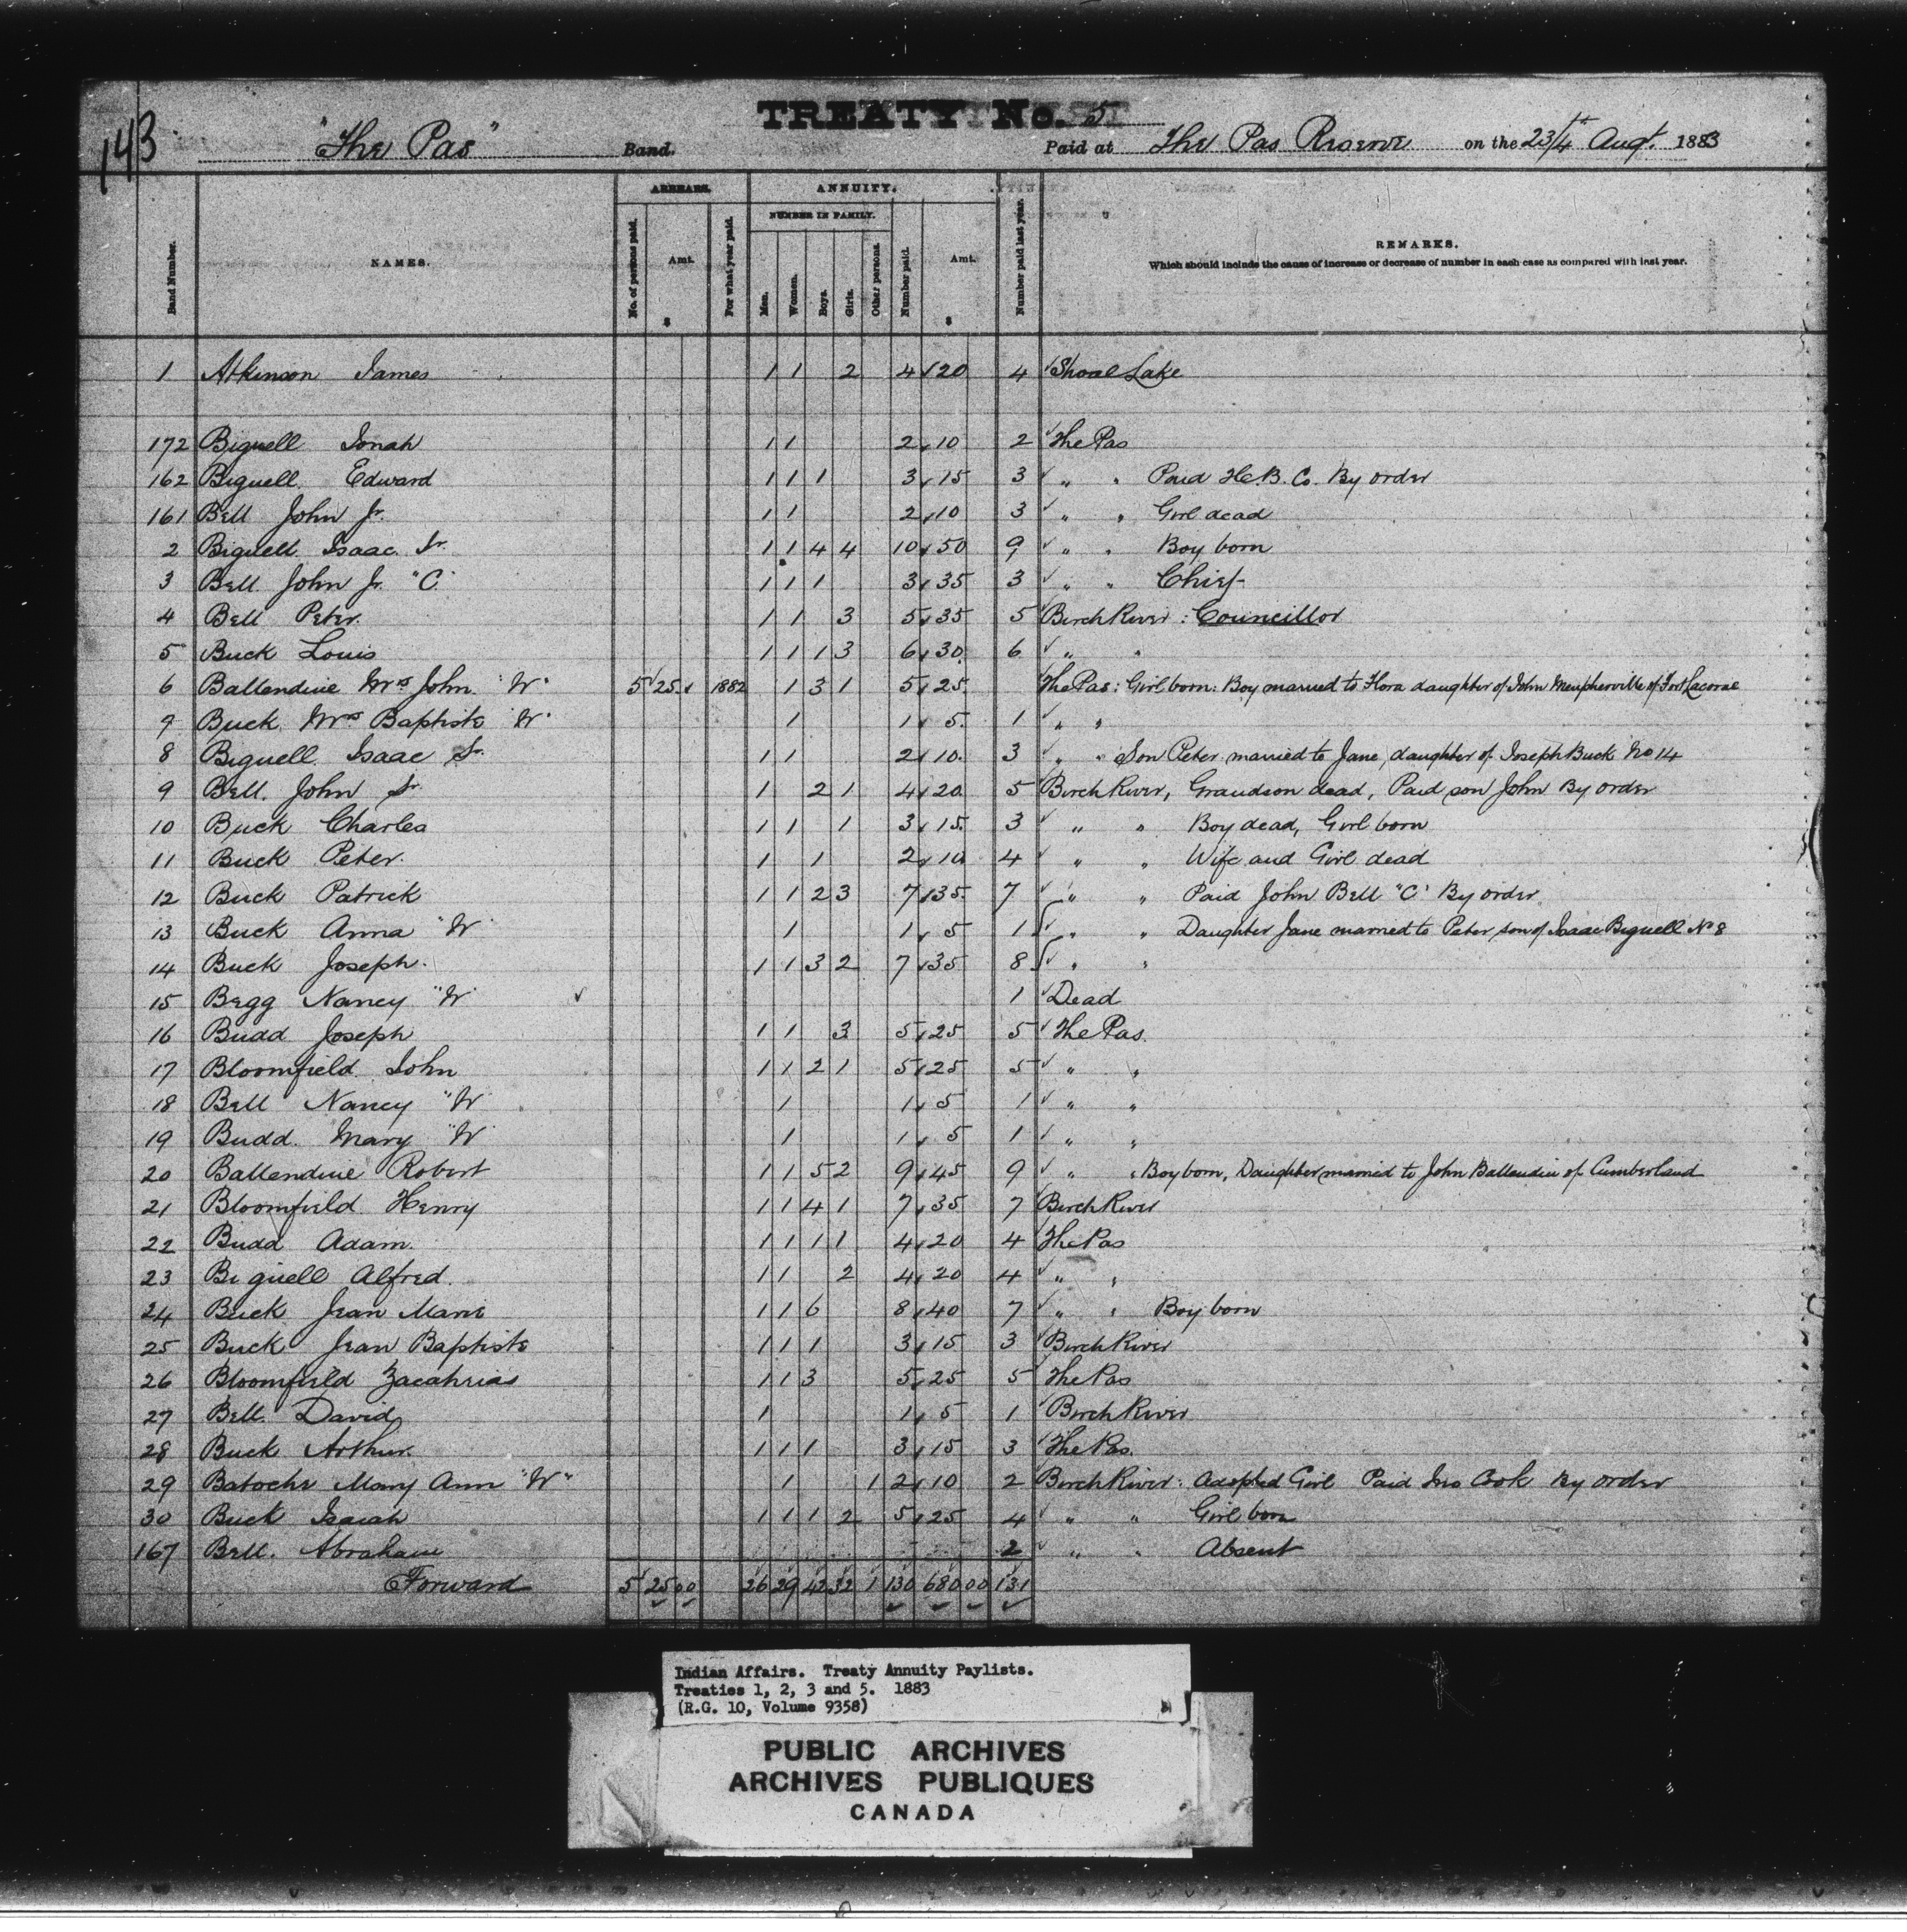 143
TREATY No. 5
"The Pas" Band. Paid at The Pas Reserve on the 23/4th Augt. 1883
Band Number. NAMES. ARREARS. No. of persons paid. Amt. $ For what year paid. ANNUITY. NUMBER IN FAMILY. Men. Women. Boys. Girls. Other persons. Number paid. Amt. $ Number paid last year. REMARKS.
Which should include the cause of increase or decrease of number in each case as compared with last year.
1 Atkinson James 1 1 2 4 20 4 Shoal Lake
172 Bignell Jonah 1 1 2 10 2 The Pas
162 Bignell Edward 1 1 1 3 15 3 " " Paid H.B. Co. By order
161 Bell John Jr. 1 1 2 10 3 " " Girl dead
2 Bignell Isaac Jr. 1 1 4 4 10 50 9 " " Boy born
3 Bell John Jr. "C" 1 1 1 3 35 3 " " Chief
4 Bell Peter 1 1 3 5 35 5 Birch River : Councillor
5 Buck Louis 1 1 1 3 6 30 6 " "
6 Ballendine Mrs John "W" 5 25 1882 1 3 1 5 25 The Pas : Girl born : Boy married to Flora daughter of John of Fort Lacorne
7 Buck Mrs Baptiste "W" 1 1 5 1 " "
8 Bignell Isaac Sr. 1 1 2 10 3 " " Son Peter married to Jane, daughter of Joseph Buck No 14
9 Bell John Sr. 1 2 1 4 20 5 Birch River, Grandson dead, Paid son John By order
10 Buck Charles 1 1 1 3 15 3 " " Boy dead, Girl born
11 Buck Peter 1 1 2 10 4 " " Wife and Girl dead
12 Buck Patrick 1 1 2 3 7 35 7 " " Paid John Bell "C" By order
13 Buck Anna "W" 1 1 5 1 " " Daughter Jane married to Peter son of Isaac Bignell No 8
14 Buck Joseph 1 1 3 2 7 35 8 " "
15 Begg Nancy "W" 1 Dead
16 Budd Joseph 1 1 3 5 25 5 The Pas
17 Bloomfield John 1 1 2 1 5 25 5 " "
18 Bell Nancy "W" 1 1 5 1 " "
19 Budd Mary "W" 1 1 5 1 " "
20 Ballendine Robert 1 1 5 2 9 45 9 " " Boy born, Daughter married to John Ballendin of Cumberland
21 Bloomfield Henry 1 1 4 1 7 35 7 Birch River
22 Budd Adam 1 1 1 1 4 20 4 The Pas
23 Bignell Alfred 1 1 2 4 20 4 " "
24 Buck Jean Marie 1 1 6 8 40 7 " " Boy born
25 Buck Jean Baptiste 1 1 1 3 15 3 Birch River
26 Bloomfield Zacahrias 1 1 3 5 25 5 The Pas
27 Bell David 1 1 5 1 Birch River
28 Buck Arthur 1 1 1 3 15 3 The Pas
29 Batoche Mary Ann "W" 1 1 2 10 2 Birch River : Adopted Girl Paid Jno Cook By order
30 Buck Isaiah 1 1 1 2 5 25 4 " " Girl born
167 Bell Abraham 2 " " Absent
Forward 5 25 00 26 29 42 32 1 130 680 00 131
Indian Affairs. Treaty Annuity Paylists.
Treaties 1, 2, 3 and 5. 1883
(R.G. 10, Volume 9358)
PUBLIC ARCHIVES
ARCHIVES PUBLIQUES
CANADA